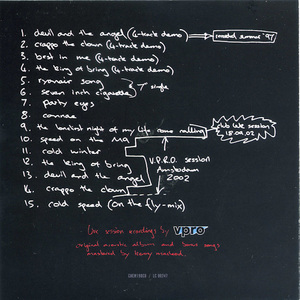 1. devil and the angel (4-track demo)
2. crappo the clown (4-track demo)
3. best in me (4-track demo)
4. the king of bring (4-track demo)
5. ryanair song
6. seven inch cigarette
7" single
7. party eyes
8. cannae
9. the loneliest night of my life came calling
10. speed on the M9
11. cold winter
12. the king of bring
13. devil and the angel
14. crappo the clown
V.P.R.O. session
Amsterdam
2002
15. cold speed (on the fly-mix)
late session
18.09.02
summer '97
recordings by vpro
original acoustic album and bonus songs
mastered by kenny macleod